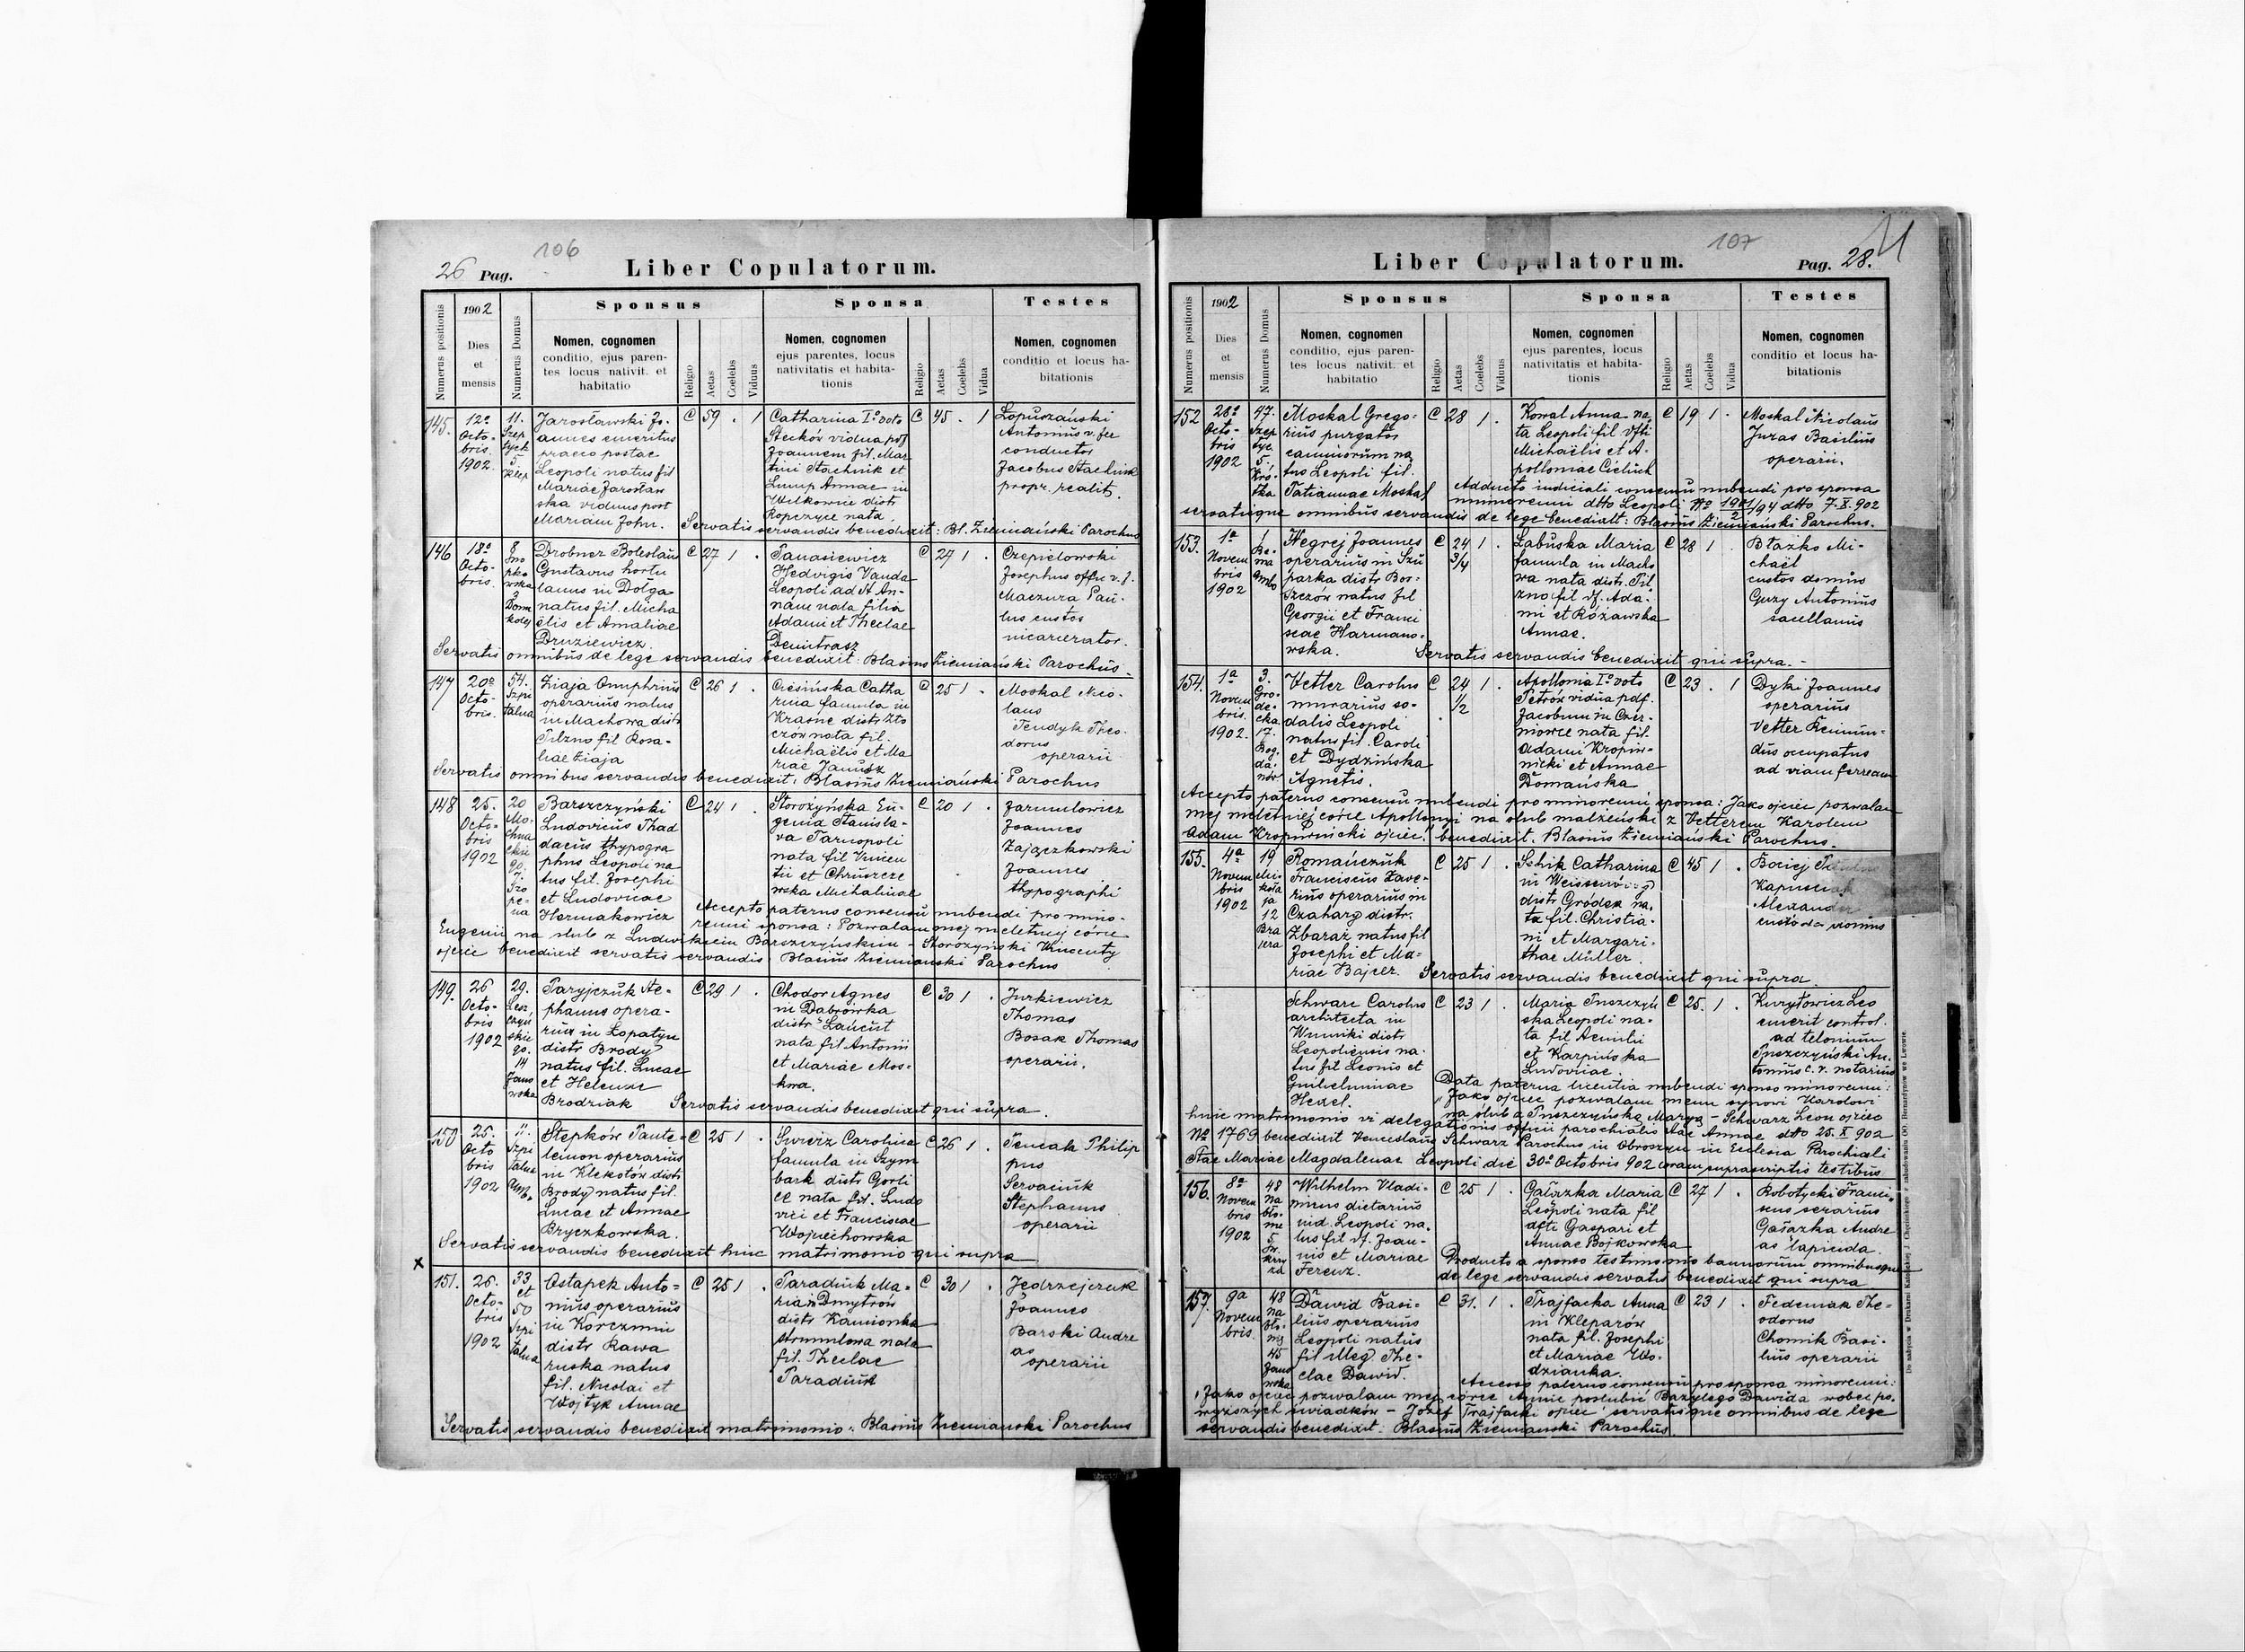 106
26 Pag.
Liber Copulatorum.
Numerus positionis
1902
Dies
et
mensis
Numerus Domus
Sponsus
Nomen, cognomen
conditio, ejus paren-
tes locus nativit. et
habitatio
Religio
Aetas
Coelebs
Viduus
Sponsa
Nomen, cognomen
ejus parentes, locus
nativitatis et habita-
tionis
Religio
Aetas
Coelebs
Vidua
Testes
Nomen, cognomen
conditio et locus ha-
bitationis
145.
12a
Octo-
bris
1902.
11.
Szep
tyck
5
Klep
Jarosławski Jo-
annes emeritus
praeco postae
Leopoli natus fil
Mariae Jarosław
ska viduus post
Mariam John.
C 59 . 1
Catharina I° voto
Stecków vidua post
Joannem fil. Mar
tini Stachnik et
Lump Annae in
Witkowice distr
Ropczyce nata
C 45 . 1
Łopuszański
Antonius v. fer
conductor
Jacobus Stachnik
propr. realit.
Servatis servandis benedixit: Bl. Ziemiański Parochus
146
18a
Octo-
bris.
Drobner Boleslaus
Gustavus hortu
lanus in Dołga
natus fil. Micha
ëlis et Amaliae
Druziewicz
C 27 1 .
Panasiewicz
Hedvigis Vanda
Leopoli ad St An-
nam nata filia
Adami et Theclae
Demitrasz
C 27 1 .
Czepielowski
Josephus
Maczura Pau-
lus custos
incarcerator.
Servatis omnibus de lege servandis benedixit: Blasius Ziemiański Parochus.
147
20a
Octo-
bris.
54.
Szpi
talna
Ziaja Onuphrius
operarius natus
in Machowa distr
Pilzno fil Rosa-
liae Ziaja
C 26 1
Ciesińska Catha
rina famula in
Krasne distr Zło
czów nata fil.
Michaëlis et Ma
riae Janusz
C 25 1 .
Moskal Nico-
laus
Tendyk Theo-
dorus
operarii
Servatis omnibus servandis benedixit: Blasius Ziemiański Parochus
148
25.
Octo-
bris
1902
20
Mo-
chna
ckie
go.
Barszczyński
Ludovicus Thad
daeus thypogra
phus Leopoli na
tus fil. Josephi
et Ludovicae
Hermakowicz
C 24 1 .
Storożyńska Eu-
genia Stanisla-
va Tarnopoli
nata fil Vincen
tii et Chruszcze
wska Michalinae
C 20 1 .
Jarmulowicz
Joannes
Zajączkowski
Joannes
thypographi
Accepto paterno consensu nubendi pro mino-
renni sponsa: Pozwalam mej nieletniej córce
Eugenii na slub z Ludwikiem Barszczyńskim - Storożyński Wincenty
ojciec benedixit servatis servandis. Blasius Ziemiański Parochus
149.
26
Octo-
bris
1902
29.
Lesz
czyń
skie
go.
14
Jano
wska
Paryjczuk Ste-
phanus opera-
rius in Łopatyn
distr Brody
natus fil. Lucae
et Helenae
Brodziak
C 29 1 .
Chodor Agnes
in Dabrówka
distr Lańcut
nata fil Antonii
et Mariae Mos-
kwa.
C 30 1 .
Jurkiewicz
Thomas
Bosak Thomas
operarii.
Servatis servandis benedixit qui supra.
150
26.
Octo
bris
1902
11.
Szpi
talna
amb.
Stepków Pante-
lemon operarius
in Klekotów distr
Brody natus fil.
Lucae et Annae
Bryczkowska.
C 25 1 .
Swierz Carolina
famula in Szym
bark distr Gorli
ce nata fil. Ludo
vici et Franciscae
Wojciechowska
C 26 1 .
Feniak Philip
pus
Serwaciuk
Stephanus
operarii
Servatis servandis benedixit hinc matrimonio qui supra
x
151.
26.
Octo-
bris
1902
33
et
50
Szpi
talna
Ostapek Anto-
nius operarius
in Korczmin
distr Rawa
ruska natus
fil. Nicolai et
Wojtyk Annae
C 25 1 .
Paradiuk Ma-
ria in Dmytrów
distr Kamionka
strumilowa nata
fil. Theclae
Paradiuk
C 30 1 .
Jędrzejczuk
Joannes
Barski Andre
as
operarii
Servatis servandis benedixit matrimonio: Blasius Ziemiański Parochus
107
Liber Copulatorum.
Pag. 28.
Numerus positionis
1902
Dies
et
mensis
Numerus Domus
Sponsus
Nomen, cognomen
conditio, ejus paren-
tes locus nativit. et
habitatio
Religio
Aetas
Coelebs
Viduus
Sponsa
Nomen, cognomen
ejus parentes, locus
nativitatis et habita-
tionis
Religio
Aetas
Coelebs
Vidua
Testes
Nomen, cognomen
conditio et locus ha-
bitationis
152
26a
Octo-
bris
1902
47.
Szep
tyc.
5,
Kró-
tka
Moskal Grego-
rius purgator
caminorum na
tus Leopoli fil.
Tatiannae Moskal
C 28 1 .
Kowal Anna na
ta Leopoli fil.
Michaëlis et A-
polloniae Cieluch
C 19 1 .
Moskal Nicolaus
Juras Basilius
operarii.
Adducto iudiciali consensu nubendi pro sponsa
minorenni dtto Leopoli No 1901/94 dtto 7.X.902
servatisque omnibus servandis de lege benedixit: Blasius Ziemiański Parochus.
153.
1a
Novem
bris
1902
Hegrej Joannes
operarius in Szu
parka distr Bor-
szczów natus fil
Georgii et Franci
scae Harmano-
wska.
C 24 3/4 1 .
Labuska Maria
famula in Macho
wa nata distr. Pil
zno fil Ada-
mi et Różawska
Annae.
C 28 1
Błażko Mi-
chaël
custos domus
Guzy Antonius
sacellanus
Servatis servandis benedixit qui supra.-
154.
1a
Novem
bris.
1902.
3.
Gro-
de-
cka.
17.
Bog
da-
nów
Vetter Carolus
murarius so-
dalis Leopoli
natus fil. Caroli
et Dydzińska
Agnetis.
C 24 1/2 1 .
Apollonia I° voto
Petrów vidua pdf.
Jacobum in Czer-
niowce nata fil.
Adami Kropiw-
nicki et Annae
Domańska
C 23 . 1
Dyki Joannes
operarius
Vetter
occupatus
ad viam ferream
Accepto paterno consensu nubendi pro minorenni sponsa: Jako ojciec pozwalam
mej nieletniej córce Apollonyi na slub małżeński z Vetterem Karolem
Adam Kropiwnicki ojciec." benedixit. Blasius Ziemiański Parochus.
155.
4a
Novem
bris
1902
19
Mi-
koła
ja
12
Romańczuk
Franciscus Xave-
rius operarius in
Czaharg distr.
Zbaraz natus fil
Josephi et Ma-
riae Bajcer.
C 25 1 .
Schik Catharina
in
distr Gródek na-
ta fil. Christia-
ni et Margari-
thae Müller
C 45 1 .
Bociej
Kapusciak
Alexander
custodes domus
Servatis servandis benedixit qui supra.
Schwarc Carolus
architecta in
Winniki distr
Leopoliensis na-
tus fil Leonis et
Guilhelminae
Hexel.
C 23 1 .
Maria Puszczyń
ska Leopoli na-
ta fil Aemilii
et Karpińska
Ludovicae.
C 25. 1 .
Kuryłowicz Leo
emerit control.
ad telonium
Puszczyński An-
tonius c.r. notarius
Data paterna licentia nubendi sponso minorenni:
"Jako ojciec pozwalam memu synowi Karolowi
na slub z Puszczyńską Maryą - Schwarz Leon ojciec
huic matrimonio vi delegationis officii parochialis Stae Annae dtto 25. X 902
No 1769 benedixit Venceslaus Schwarz Parochus in Obroszyn in Eclesia Parochiali
Stae Mariae Magdalenae Leopoli die 30a Octobris 902 coram suprascriptis testibus
156.
8a
Novem
bris
1902
48
na
bło-
nie
5
Św.
krzy
ża
Wilhelm Vladi-
mirus dietarius
ind. Leopoli na-
tus fil Joan-
nis et Mariae
Ferenz.
C 25 1 .
Gałazka Maria
Leopoli nata fil
dfti Gaspari et
Annae Bojkowska
C 27 1 .
Robotycki Franci-
scus serarius
Gałazka Andre
as lapicida.
Producto a sponso testimonio bannorum omnibusque
de lege servandis servatis benedixit qui supra
157.
9a
Novem
bris.
48
na
bło-
nie
45
Jano
wska
Dawid Basi-
lius operarius
Leopoli natus
fil illeg. The-
clae Dawid.
C 31. 1 .
Trajfacka Anna
in Kleparów
nata fil. Josephi
et Mariae Wo-
dzianka.
C 23 1 .
Fedeniak The-
odorus
Chomik Basi-
lius operarii
Accesso paterno consensu pro sponsa minorenni:
"Jako ojciec pozwalam mej córce Annie poslubić Bazylego Dawida wobec po-
wyższych świadków - Józef Trajfacki ojciec servatisque omnibus de lege
servandis benedixit: Blasius Ziemianski Parochus
Do nabycia w Drukarni Katolickiej J. Chęcińskiego z zabudowaniu OO. Bernardynów we Lwowie.